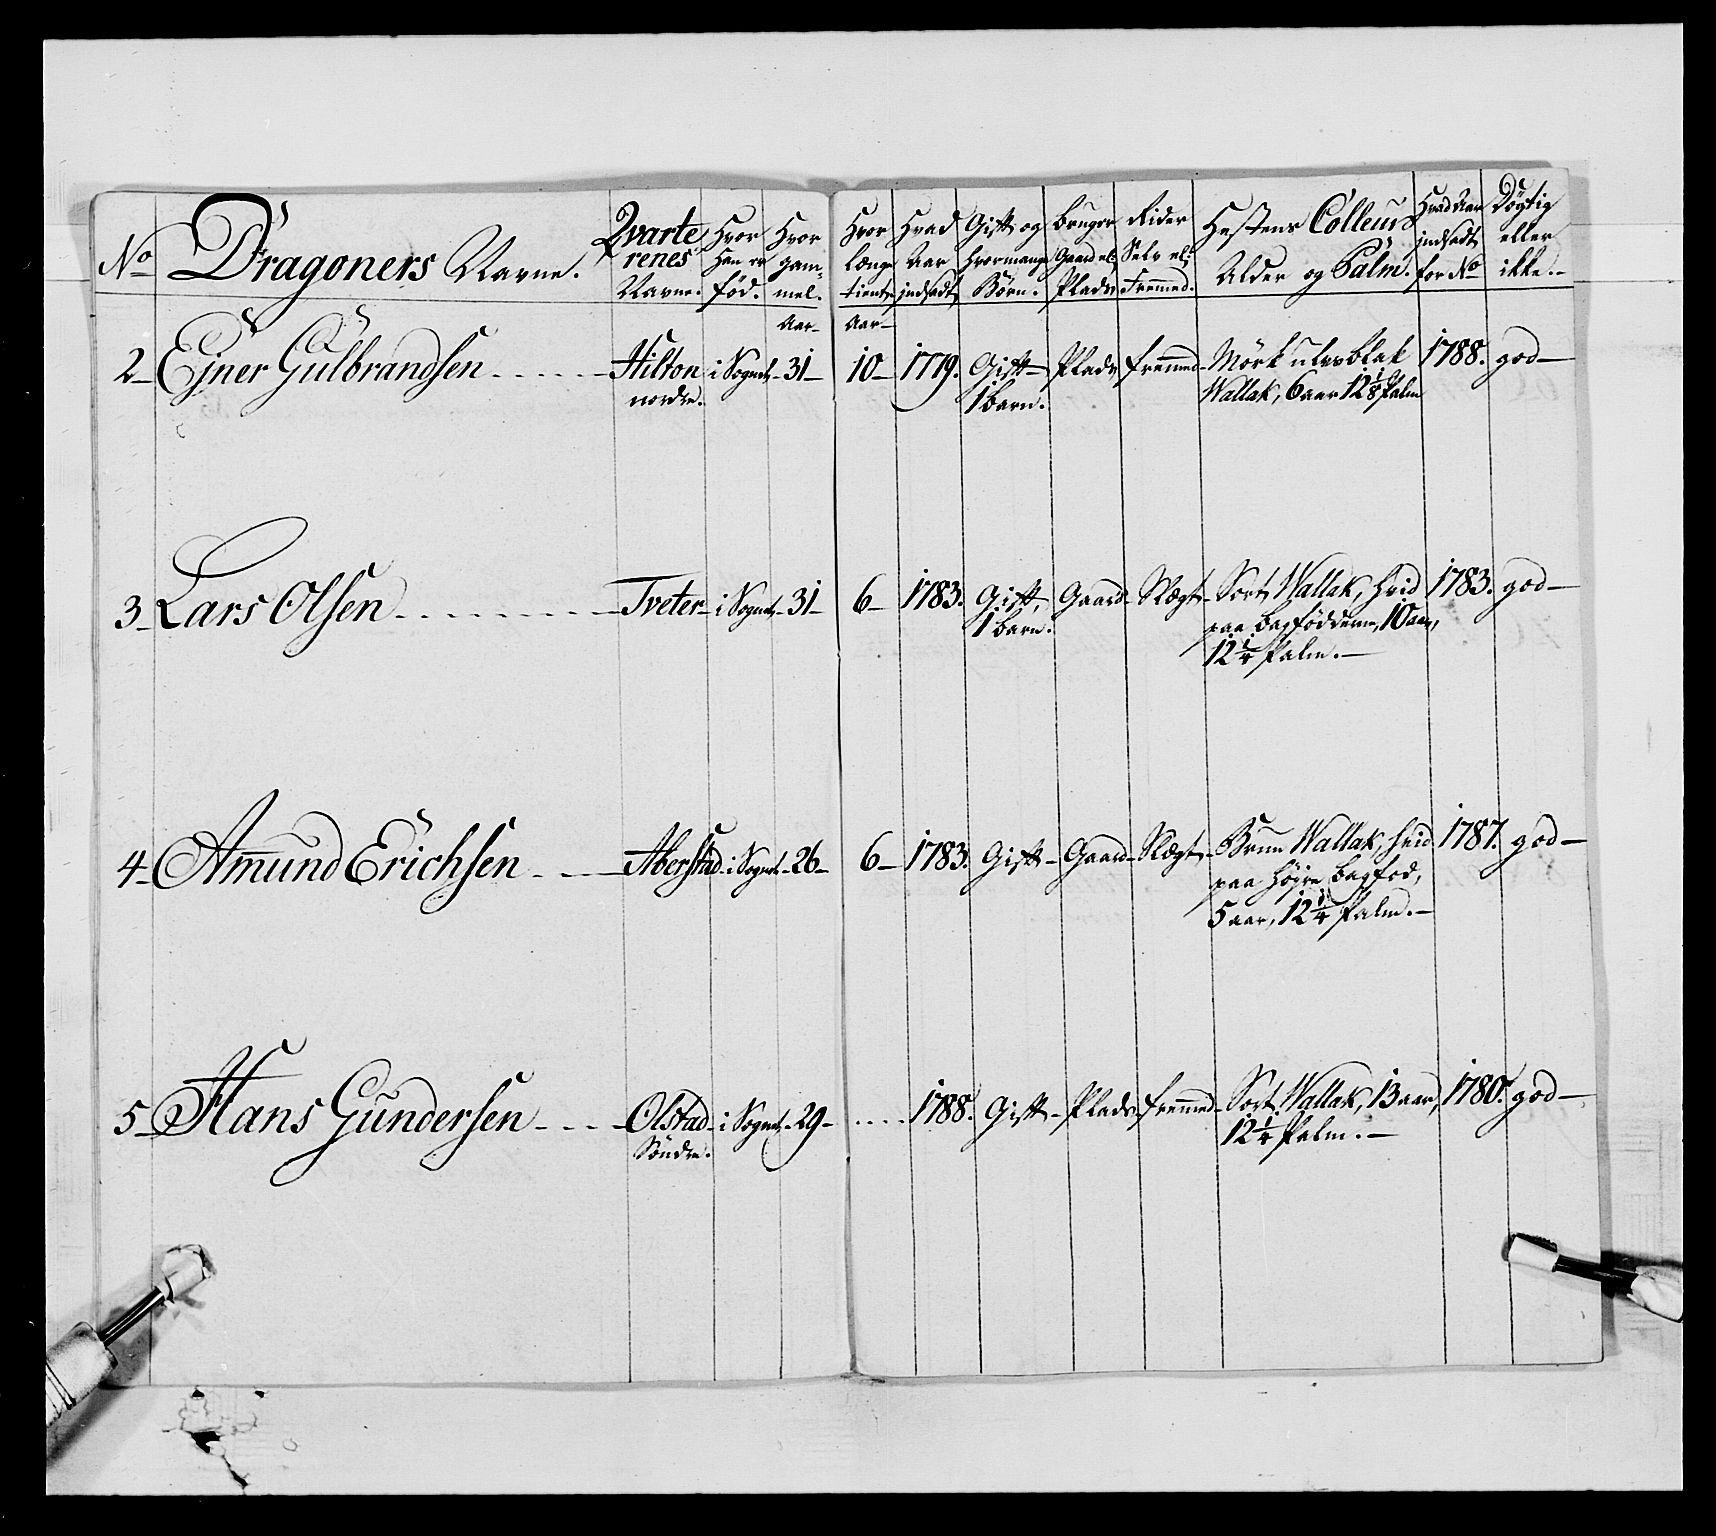 No Dragoners Navne. Qvarterenes Navne. Hvor Han er fød. Hvor gammel. Hvor længe tient Hvad Aar indsadt Gift og hvormange Børn. Bruger Gaard el: Plads Rider Selv el: Fremmed. Hestens Colleur Alder og Palm. Hvad Aar indsadt for No Dögtig eller ikke.
Aar Aar
2 Ejner Gulbrandsen Hilton i Sognet 31 10 1779. Gift Plads fremmed Mörk ulvsblak 1788. god
nordre. 1 barn. Wallak, 6 aar 12 1/8 Palm
3 Lars Olsen Tveter i Sognet 31 6 1783. Gift, Gaard Slægt Sort Wallak, hvid 1783. god
1 barn. paa bagföddderne, 10 aar,
12 1/4 Palm.
4 Amund Erichsen Aberstad i Sognet 26 6 1783. Gift Gaard Slægt Brun Wallak, hvid 1787. god
paa höjre bagfod,
5 aar, 12 1/4 Palm.
5 Hans Gundersen Olstad i Sognet 29 .... 1788. Gift Plads fremmed Sort Wallak, 13 aar, 1780. god
Söndre. 12 1/4 Palm.